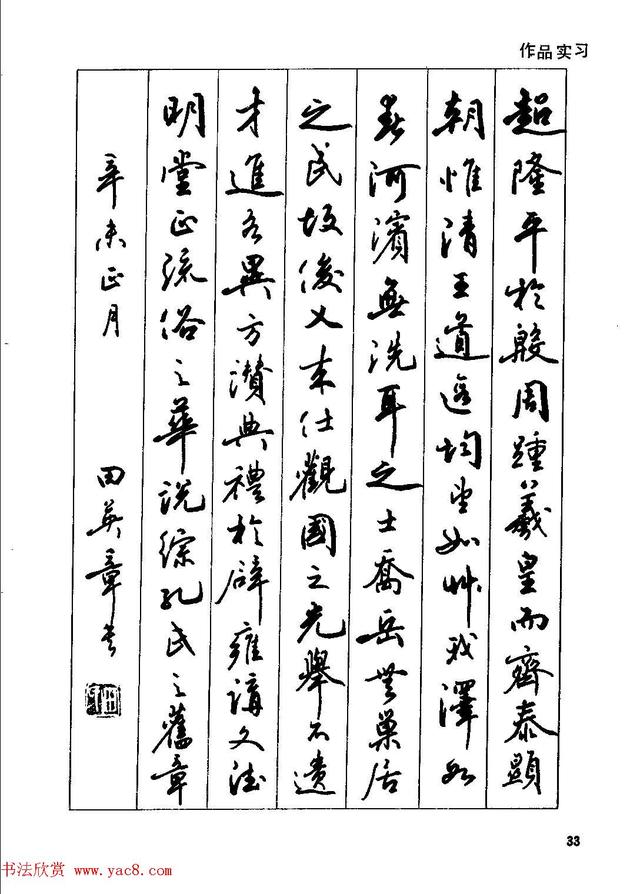 作品实习
超隆平於殷周踵羲皇而齊泰顯
朝惟清王道遐均望如艸我澤如
春河濱無洗耳之士喬岳無巢居
之民故俊乂来仕觀國之光舉不遺
才進各異方讚典禮於辟雍講文德
明堂正流俗之華説綜孔氏之舊章
辛未正月 田英章书
33
书法欣赏 www.yac8.com